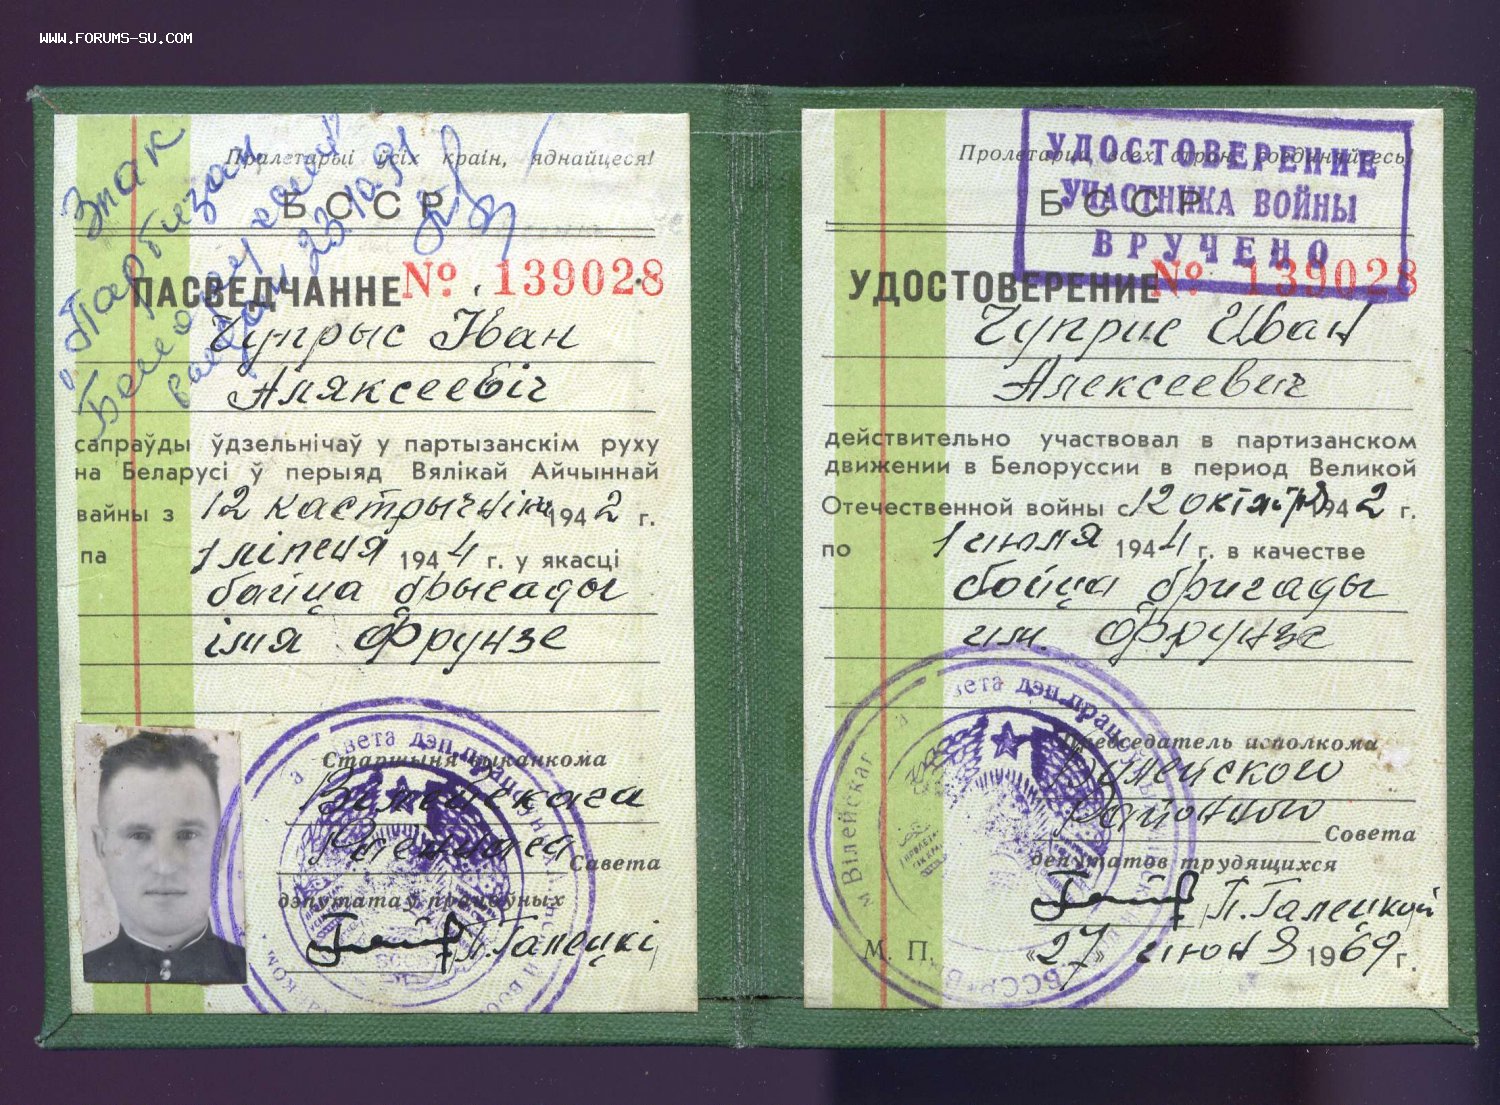 WWW.FORUMS-SU.COM
Знак
"Партизан
Белоруссии"
23.10.91
Пралетарыі ўсіх краін, яднайцеся!
БССР
ПАСВЕДЧАННЕ № 139028
Чупрыс Іван
Аляксеевіч
сапраўды ўдзельнічаў у партызанскім руху
на Беларусі ў перыяд Вялікай Айчыннай
вайны з 12 кастрычніка 1942 г.
па 1 ліпеня 1944 г. у якасці
байца брыгады
імя Фрунзе
Старшыня выканкома
Вілейскага
Раённага Савета
дэпутатаў працоўных
П. Галецкі
БССР
Пролетарии всех стран, соединяйтесь!
БССР
УДОСТОВЕРЕНИЕ
УЧАСТНИКА ВОЙНЫ
ВРУЧЕНО
УДОСТОВЕРЕНИЕ № 139028
Чуприс Иван
Алексеевич
действительно участвовал в партизанском
движении в Белоруссии в период Великой
Отечественной войны с 12 октября 1942 г.
по 1 июля 1944 г. в качестве
бойца бригады
им. Фрунзе
Председатель исполкома
Вилейского
Районного Совета
депутатов трудящихся
П. Галецкий
М. П. «27» июня 1969 г.